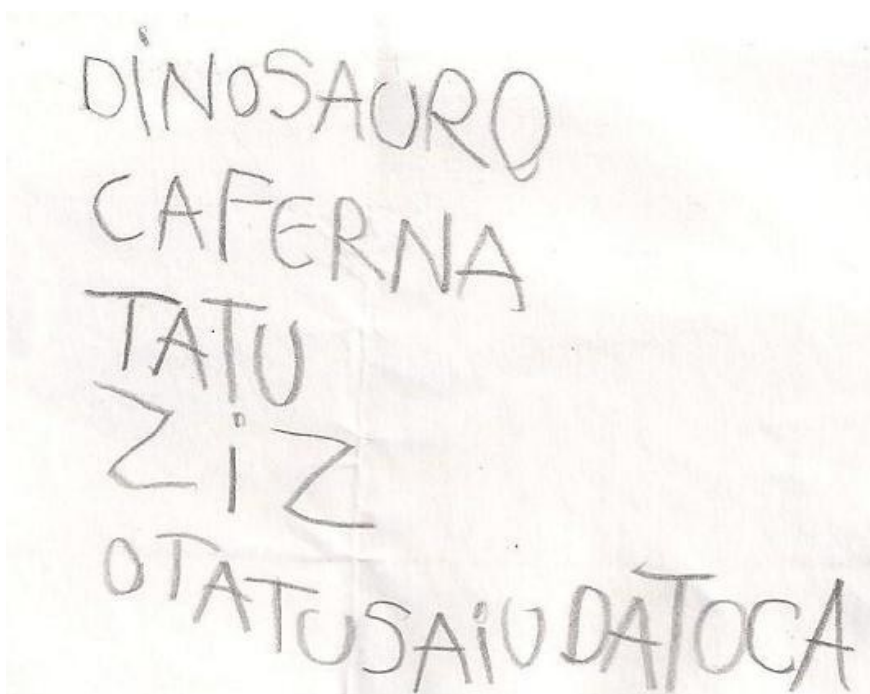 DiNOSAURO
CAFERNA
TATU
ZiZ
OTATUSAiU DATOCA